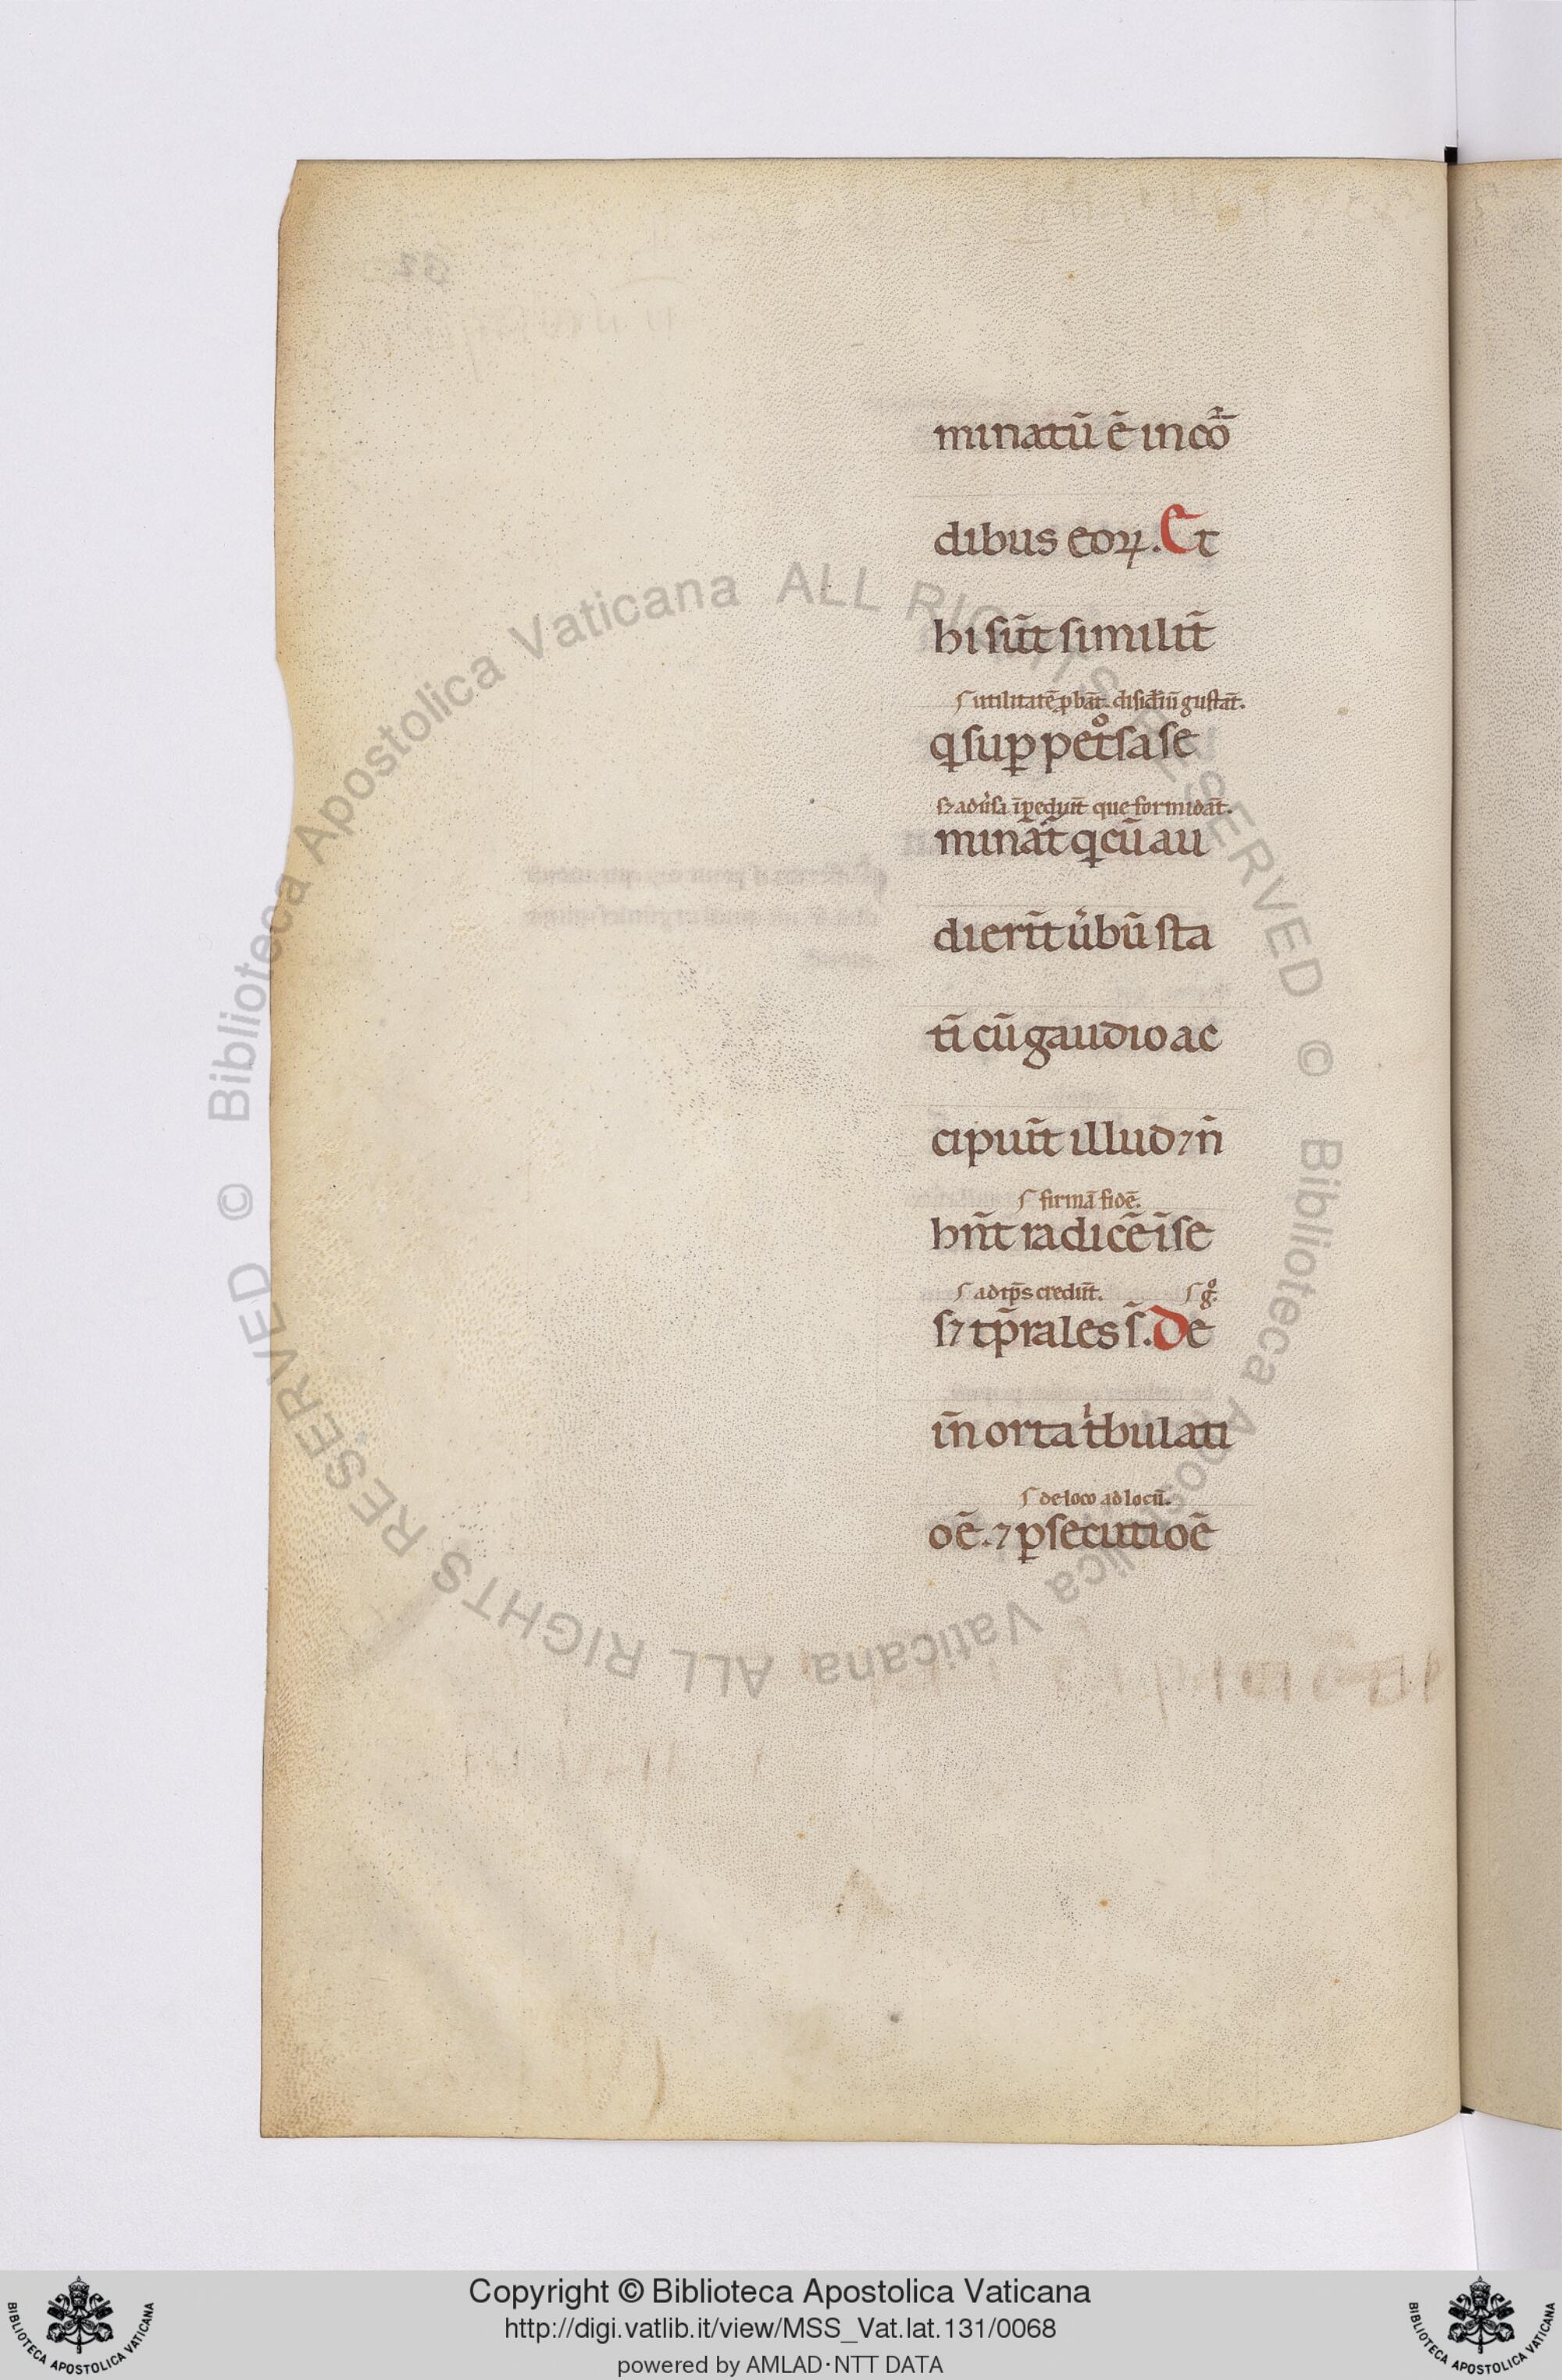 minatū ē in cōr
dibus eoꝝ. Et
hi sūt similit̄
ſ utilitatē ꝓbāt. disidiū gustāt.
q̄ suꝑ petͦsa se
sꝫ adu̾sa īpediūt que formidāt.
mināt̄ q cū au
dierīt u̾bū sta
tī cū gaudio ac
cipiūt illud ⁊ ñ
ſ firmā fidē.
hn̄t radicē ī se
ſ ad tp̄s credūt. ſ gͦ.
sꝫ tp̄rales s̄. De
īn orta tͥbulati
ſ de loco ad locū.
oē. ⁊ ꝑsecutioē
© Biblioteca Apostolica Vaticana ALL RIGHTS RESERVED
© Biblioteca Apostolica Vaticana ALL RIGHTS RESERVED
Copyright © Biblioteca Apostolica Vaticana
http://digi.vatlib.it/view/MSS_Vat.lat.131/0068
powered by AMLAD·NTT DATA
BIBLIOTECA APOSTOLICA VATICANA
BIBLIOTECA APOSTOLICA VATICANA